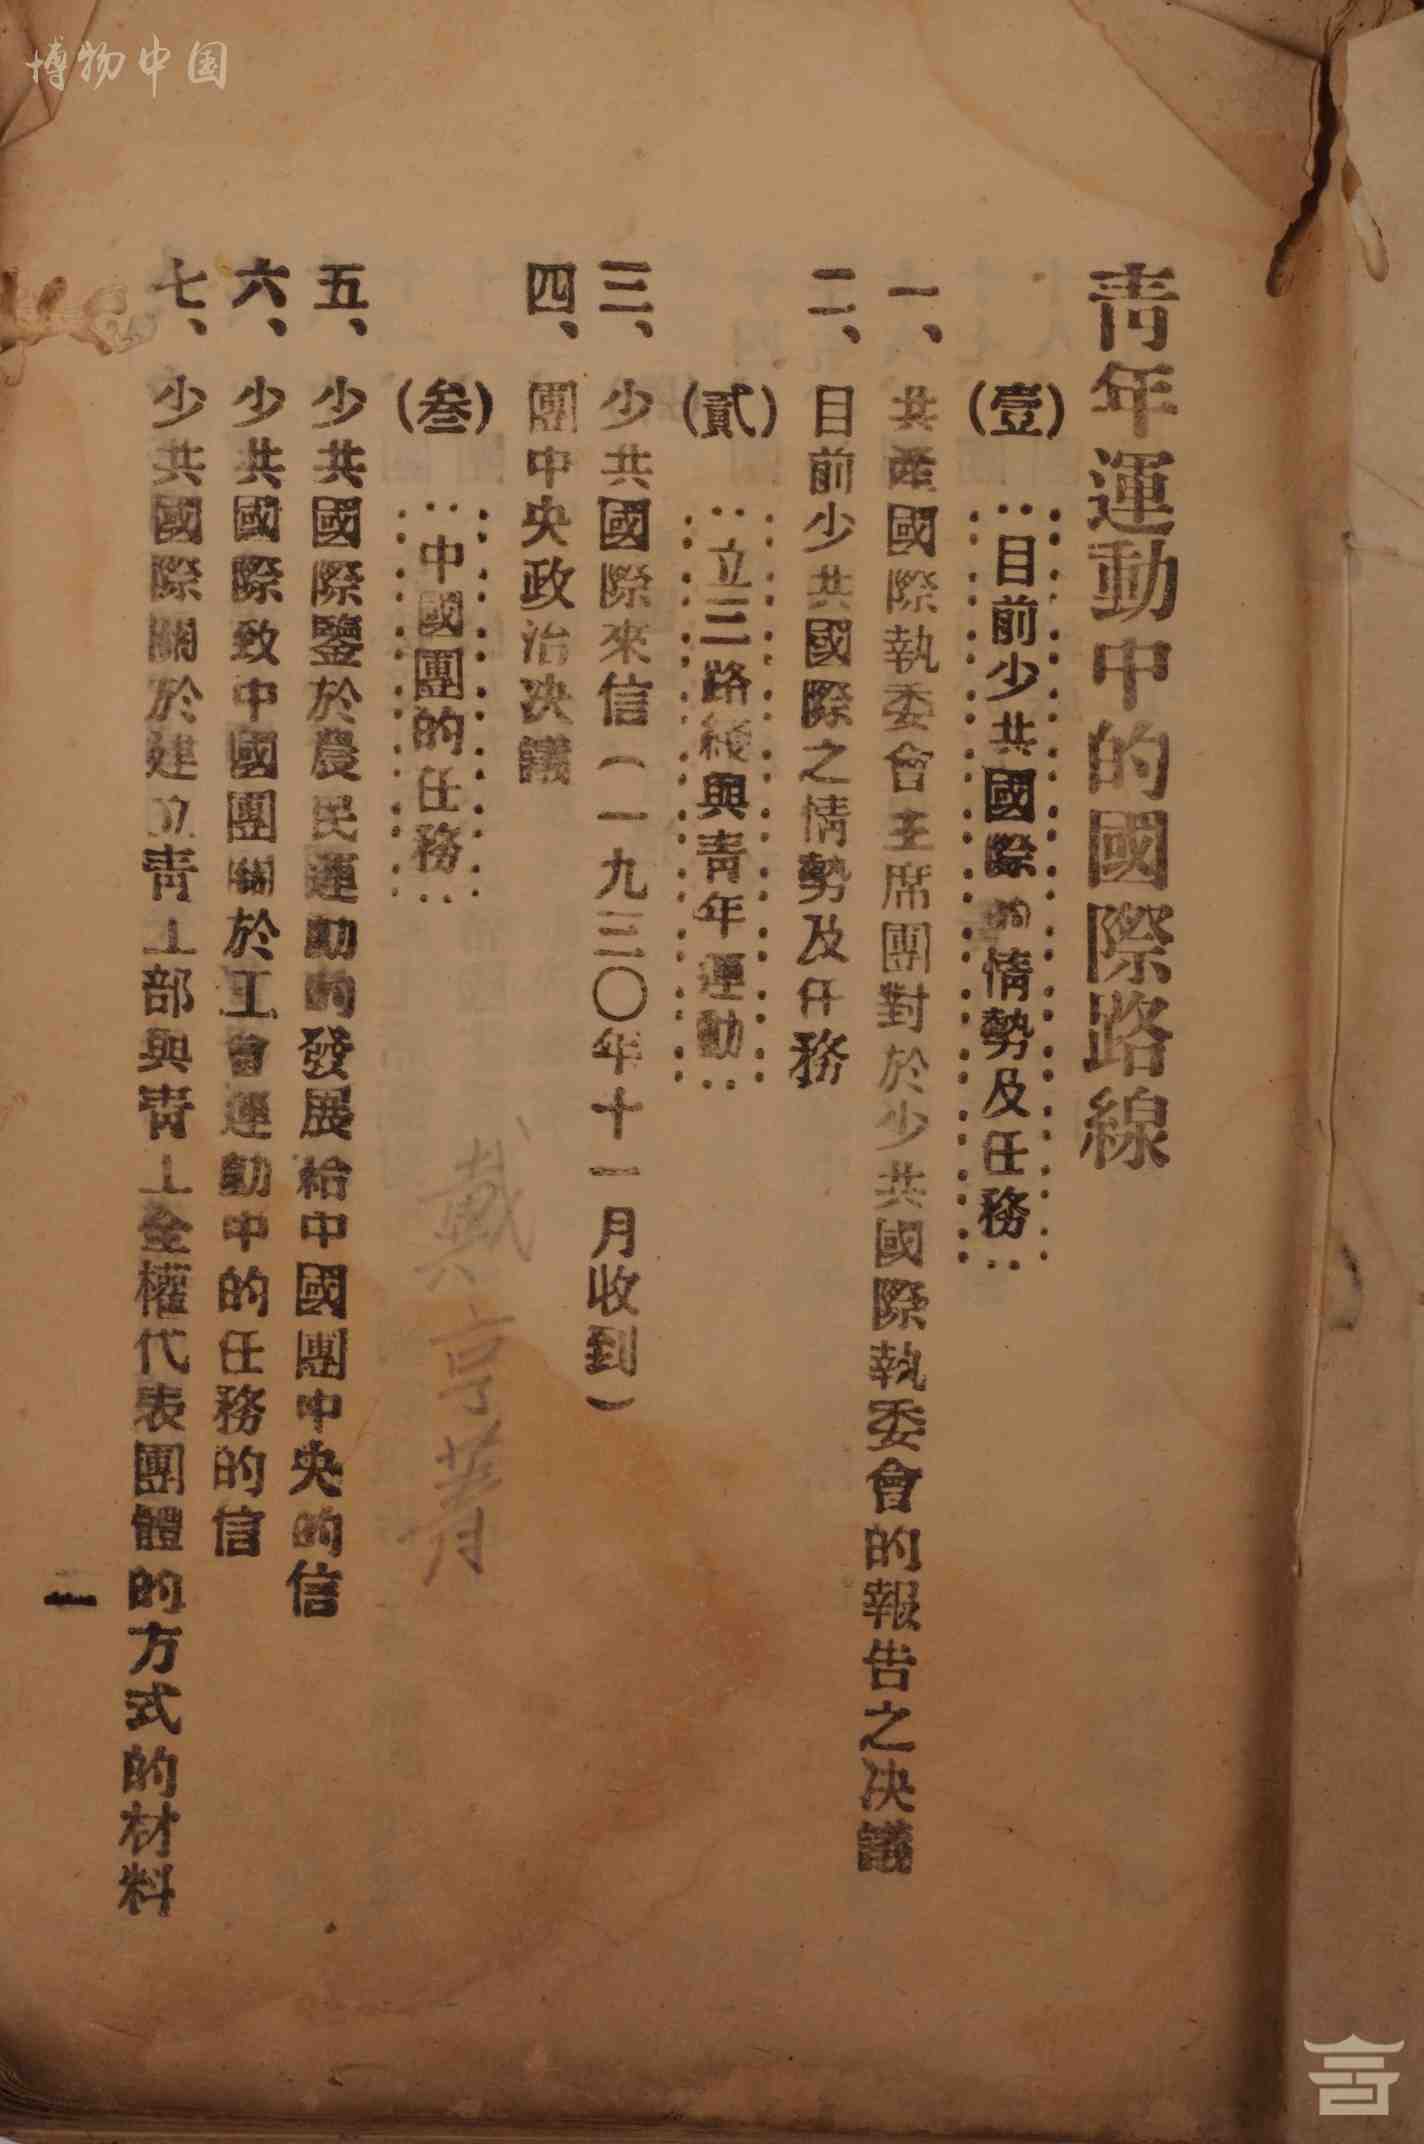 博物中国
青年運動中的國際路線
(壹) 目前少共國際的情勢及任務
一、共產國際執委會主席團對於少共國際執委會的報告之决議
二、目前少共國際之情勢及任務
(貳) 立三路綫與青年運動
三、少共國際來信(一九三〇年十一月收到)
四、團中央政治决議
(叁) 中國團的任務
戴亨菁
五、少共國際鑒於農民運動的發展給中國團中央的信
六、少共國際致中國團關於工會運動中的任務的信
七、少共國際關於建立青工部與青工全權代表團體的方式的材料
一